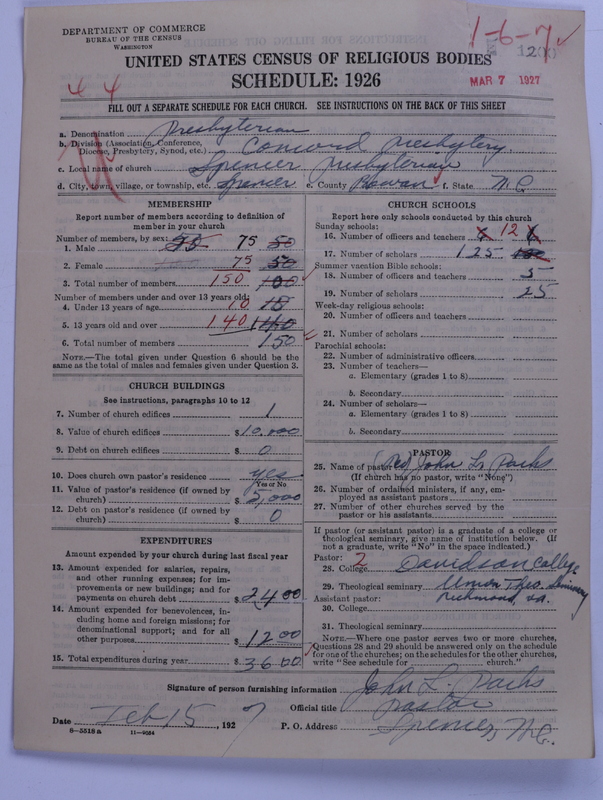 DEPARTMENT OF COMMERCE
BUREAU OF THE CENSUS
WASHINGTON
1-6-7
12(X)
UNITED STATES CENSUS OF RELIGIOUS BODIES
SCHEDULE: 1926
MAR 7 1927
4 4
FILL OUT A SEPARATE SCHEDULE FOR EACH CHURCH. SEE INSTRUCTIONS ON THE BACK OF THIS SHEET
a. Denomination Presbyterian
b. Division (Association, Conference, Diocese, Presbytery, Synod, etc.) Concord Presbytery
c. Local name of church Spencer Presbyterian
d. City, town, village, or township, etc. Spencer e. County Rowan f. State N.C.
MEMBERSHIP
Report number of members according to definition of
member in your church
Number of members, by sex:
1. Male 75 50
2. Female 75 50
3. Total number of members 150 100
Number of members under and over 13 years old:
4. Under 13 years of age 10 10
5. 13 years old and over 140 140
6. Total number of members 150
NOTE.—The total given under Question 6 should be the
same as the total of males and females given under Question 3.
CHURCH BUILDINGS
See instructions, paragraphs 10 to 12
7. Number of church edifices 1
8. Value of church edifices $10,000
9. Debt on church edifices $ 0
10. Does church own pastor's residence yes
Yes or No
11. Value of pastor's residence (if owned by
church) $5,000
12. Debt on pastor's residence (if owned by
church) $ 0
EXPENDITURES
Amount expended by your church during last fiscal year
13. Amount expended for salaries, repairs,
and other running expenses; for im-
provements or new buildings; and for
payments on church debt $2400
14. Amount expended for benevolences, in-
cluding home and foreign missions; for
denominational support; and for all
other purposes $1200
15. Total expenditures during year $3600
CHURCH SCHOOLS
Report here only schools conducted by this church
Sunday schools:
16. Number of officers and teachers 12
17. Number of scholars 125 100
Summer vacation Bible schools:
18. Number of officers and teachers 5
19. Number of scholars 25
Week-day religious schools:
20. Number of officers and teachers
21. Number of scholars
Parochial schools:
22. Number of administrative officers
23. Number of teachers—
a. Elementary (grades 1 to 8)
b. Secondary
24. Number of scholars—
a. Elementary (grades 1 to 8)
b. Secondary
PASTOR
25. Name of pastor (Rev) John L. Parks
(If church has no pastor, write "None")
26. Number of ordained ministers, if any, em-
ployed as assistant pastors
27. Number of other churches served by the
pastor or his assistants
If pastor (or assistant pastor) is a graduate of a college or
theological seminary, give name of institution below. (If
not a graduate, write "No" in the space indicated.)
Pastor: 2
28. College Davidson College
29. Theological seminary Union Theo. Seminary
Assistant pastor: Richmond, Va.
30. College
31. Theological seminary
NOTE.—Where one pastor serves two or more churches,
Questions 28 and 29 should be answered only on the schedule
for one of the churches; on the schedules for the other churches,
write "See schedule for church."
Signature of person furnishing information John L. Parks
Official title Pastor
Date Feb 15, 1927 P. O. Address Spencer, N.C.
8-5518a 11-9064